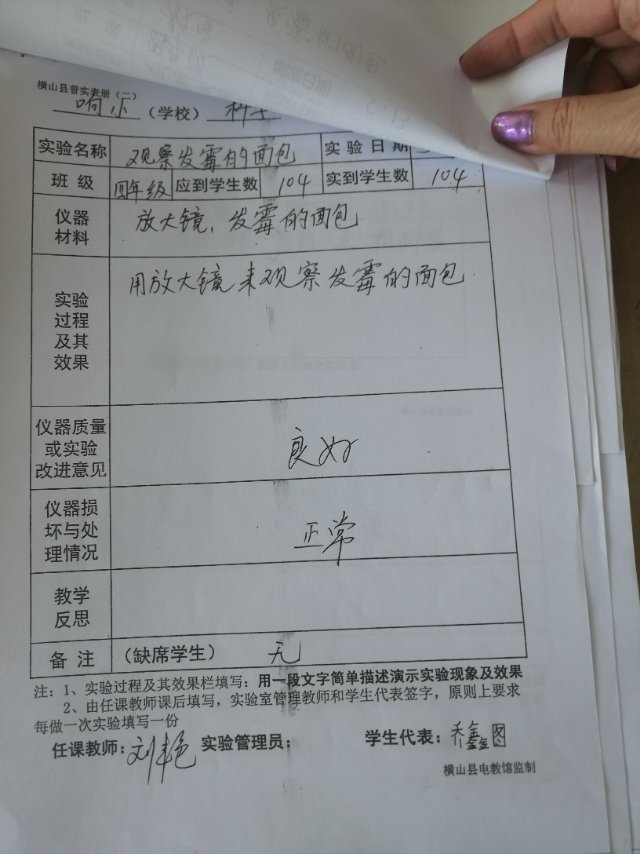 横山县普实表册（二）
响水（学校）科
实验名称 观察发霉的面包 实验日期
班级 四年级 应到学生数 104 实到学生数 104
仪器
材料
放大镜、发霉的面包
实验
过程
及其
效果
用放大镜来观察发霉的面包
仪器质量
或实验
改进意见
良好
仪器损
坏与处
理情况
正常
教学
反思
备注 （缺席学生） 无
注：1、实验过程及其效果栏填写：用一段文字简单描述演示实验现象及效果
2、由任课教师课后填写，实验室管理教师和学生代表签字，原则上要求
每做一次实验填写一份
任课教师：刘艳 实验管理员： 学生代表：乔鑫图
横山县电教馆监制